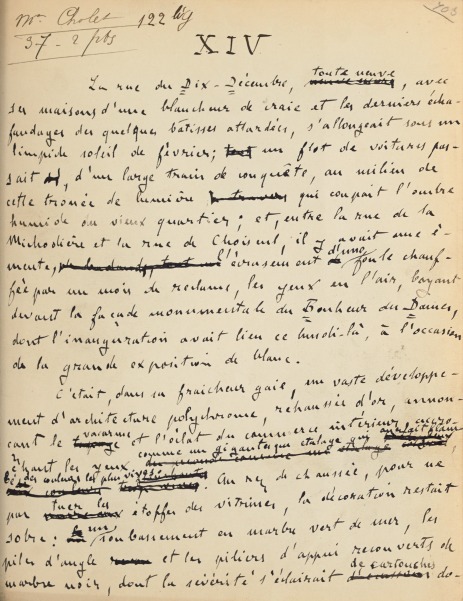 Mr Cholet 122 lig
37 - 2 pbs
703
XIV
La rue du Dix-Décembre, toute neuve, avec
ses maisons d'une blancheur de craie et les derniers écha-
faudages des quelques bâtisses attardées, s'allongeait sous un
limpide soleil de février; un flot de voitures pas-
sait, d'un large train de conquête, au milieu de
cette trouée de lumière qui coupait l'ombre
humide du vieux quartier; et, entre la rue de la
Michodière et la rue de Choiseul, il y avait une é-
meute, l'écrasement d'une foule chauf-
fée par un mois de réclame, les yeux en l'air, bayant
devant la façade monumentale du Bonheur des Dames,
dont l'inauguration avait lieu ce lundi-là, à l'occasion
de la grande exposition de blanc.
C'était, dans sa fraîcheur gaie, un vaste développe-
ment d'architecture polychrome, rehaussée d'or, annon-
çant le vacarme et l'éclat du commerce intérieur, accro-
chant les yeux comme un gigantesque étalage qui aurait flambé
des couleurs les plus vives. Au rez-de-chaussée, pour ne
pas tuer les étoffes des vitrines, la décoration restait
sobre: un soubassement en marbre vert de mer, les
piles d'angle et les piliers d'appui recouverts de
marbre noir, dont la sévérité s'éclairait de cartouches do-